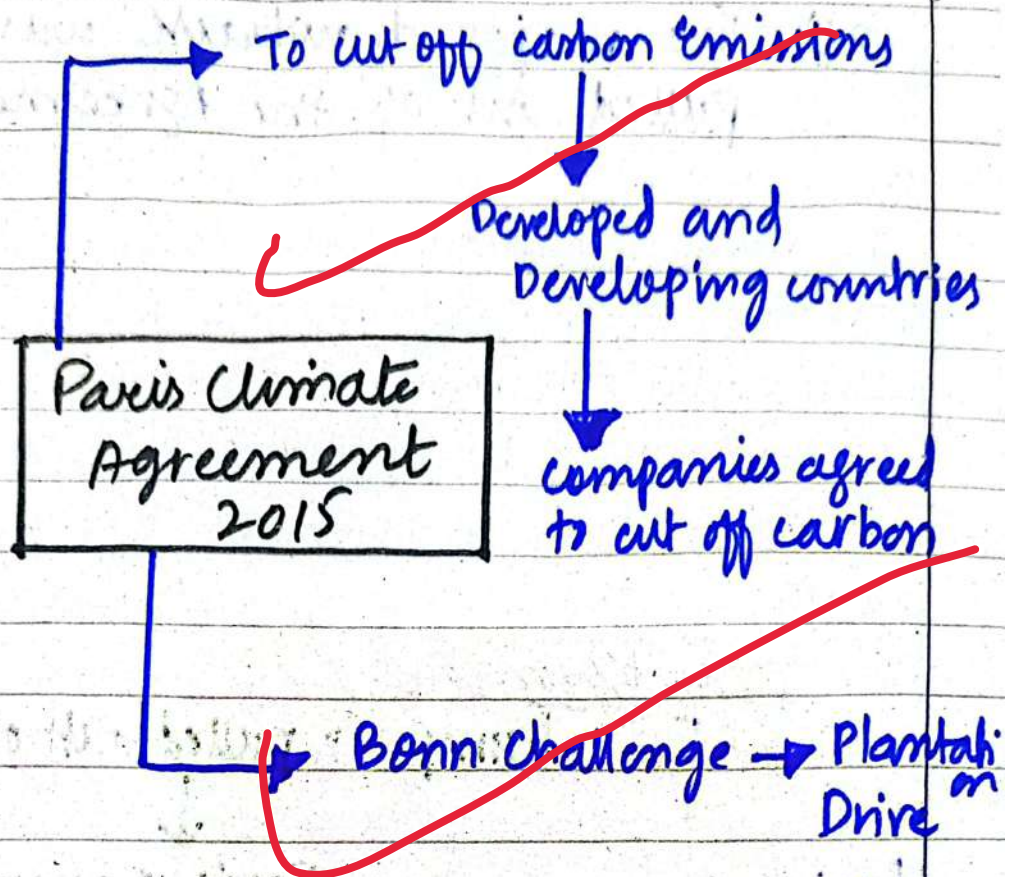 To cut off carbon Emissions
Developed and
Developing countries
Paris Climate
Agreement
2015
companies agreed
to cut off carbon
Bonn Challenge → Plantati
on
Drive